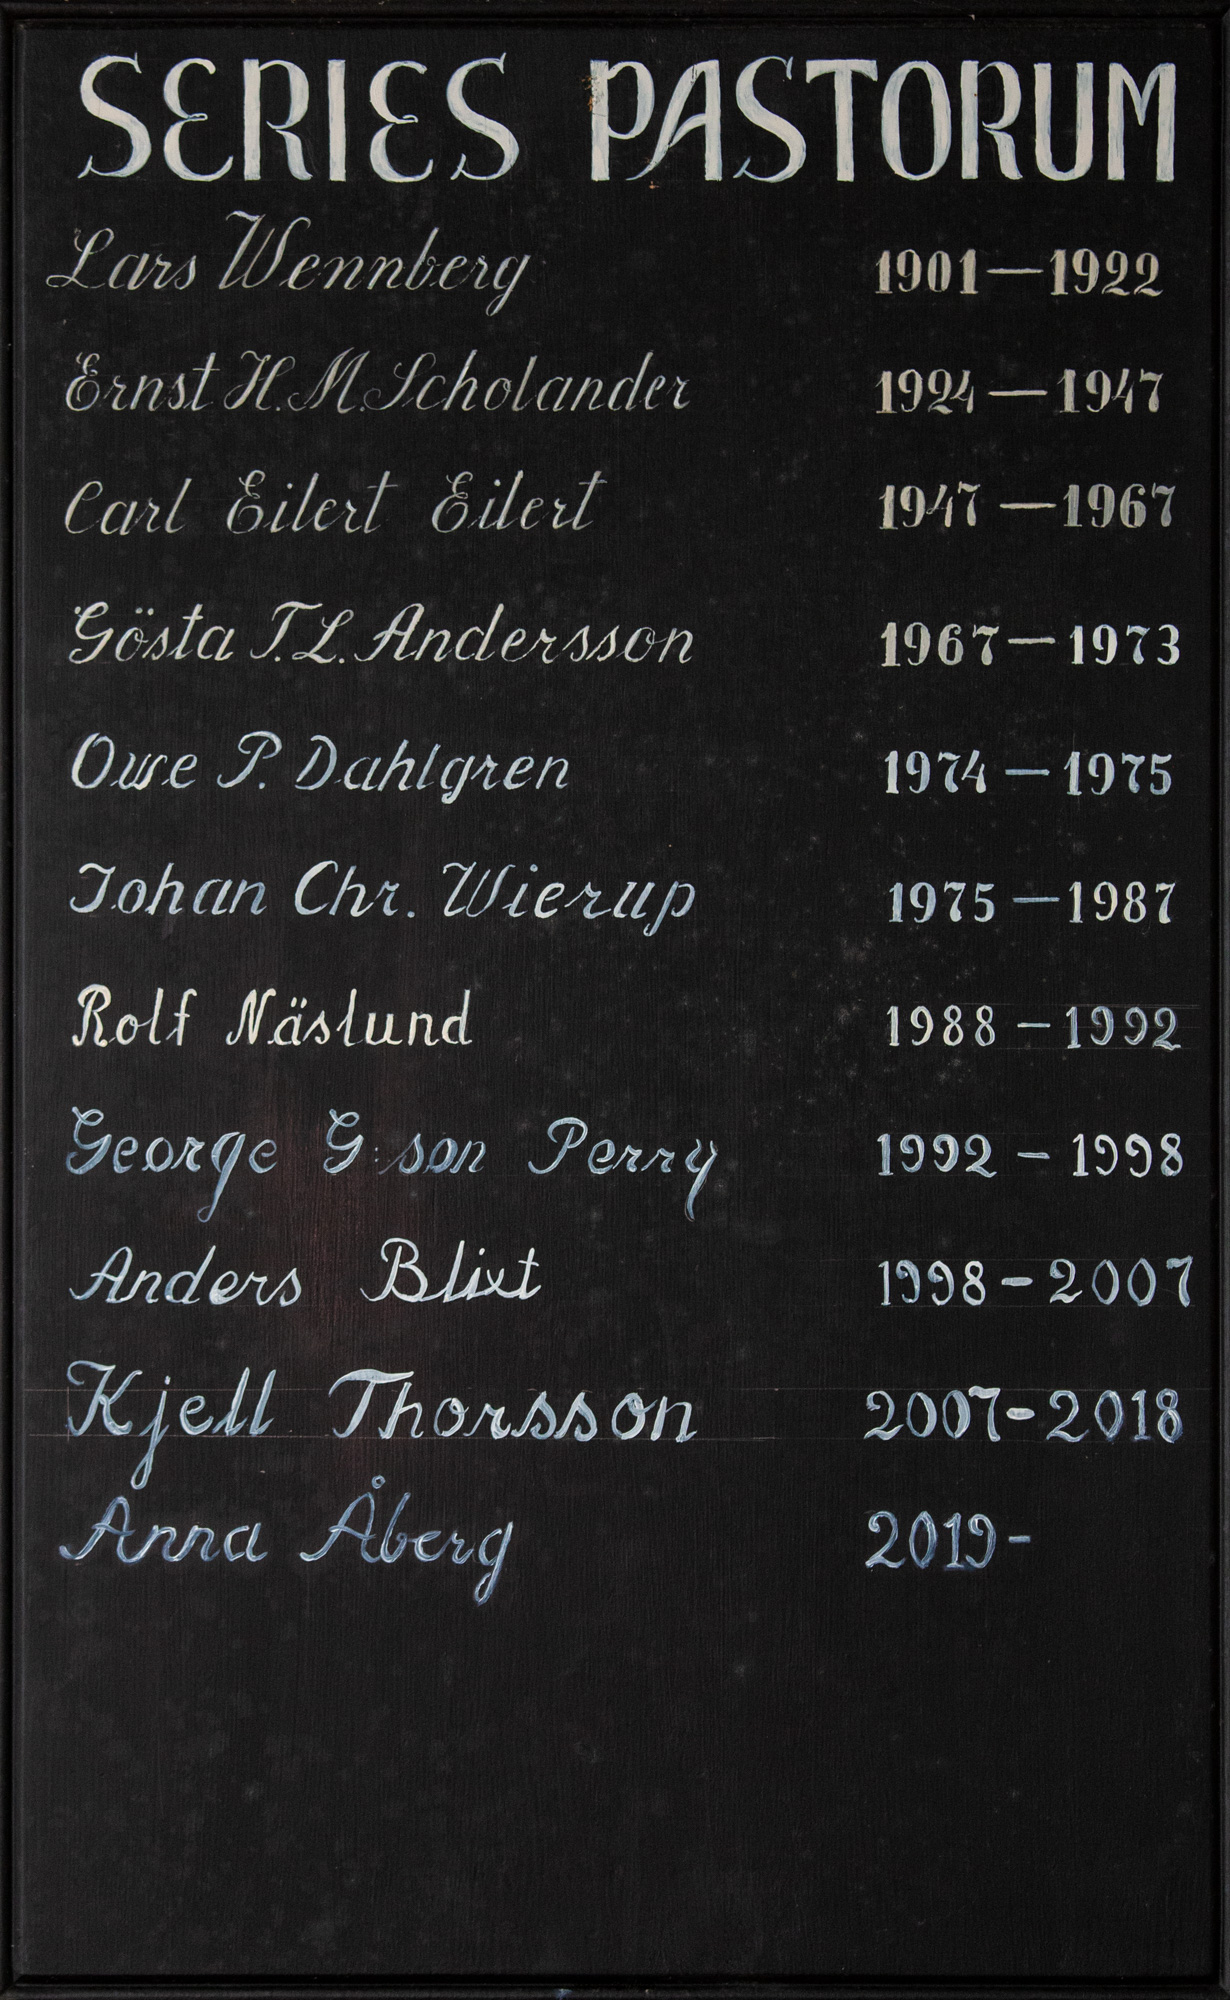 SERIES PASTORUM
Lars Wennberg 1901—1922
Ernst H. M. Scholander 1924—1947
Carl Eilert Eilert 1947—1967
Gösta T. L. Andersson 1967—1973
Owe P. Dahlgren 1974—1975
Johan Chr. Wierup 1975—1987
Rolf Näslund 1988–1992
George G:son Perry 1992–1998
Anders Blixt 1998–2007
Kjell Thorsson 2007-2018
Anna Åberg 2019-